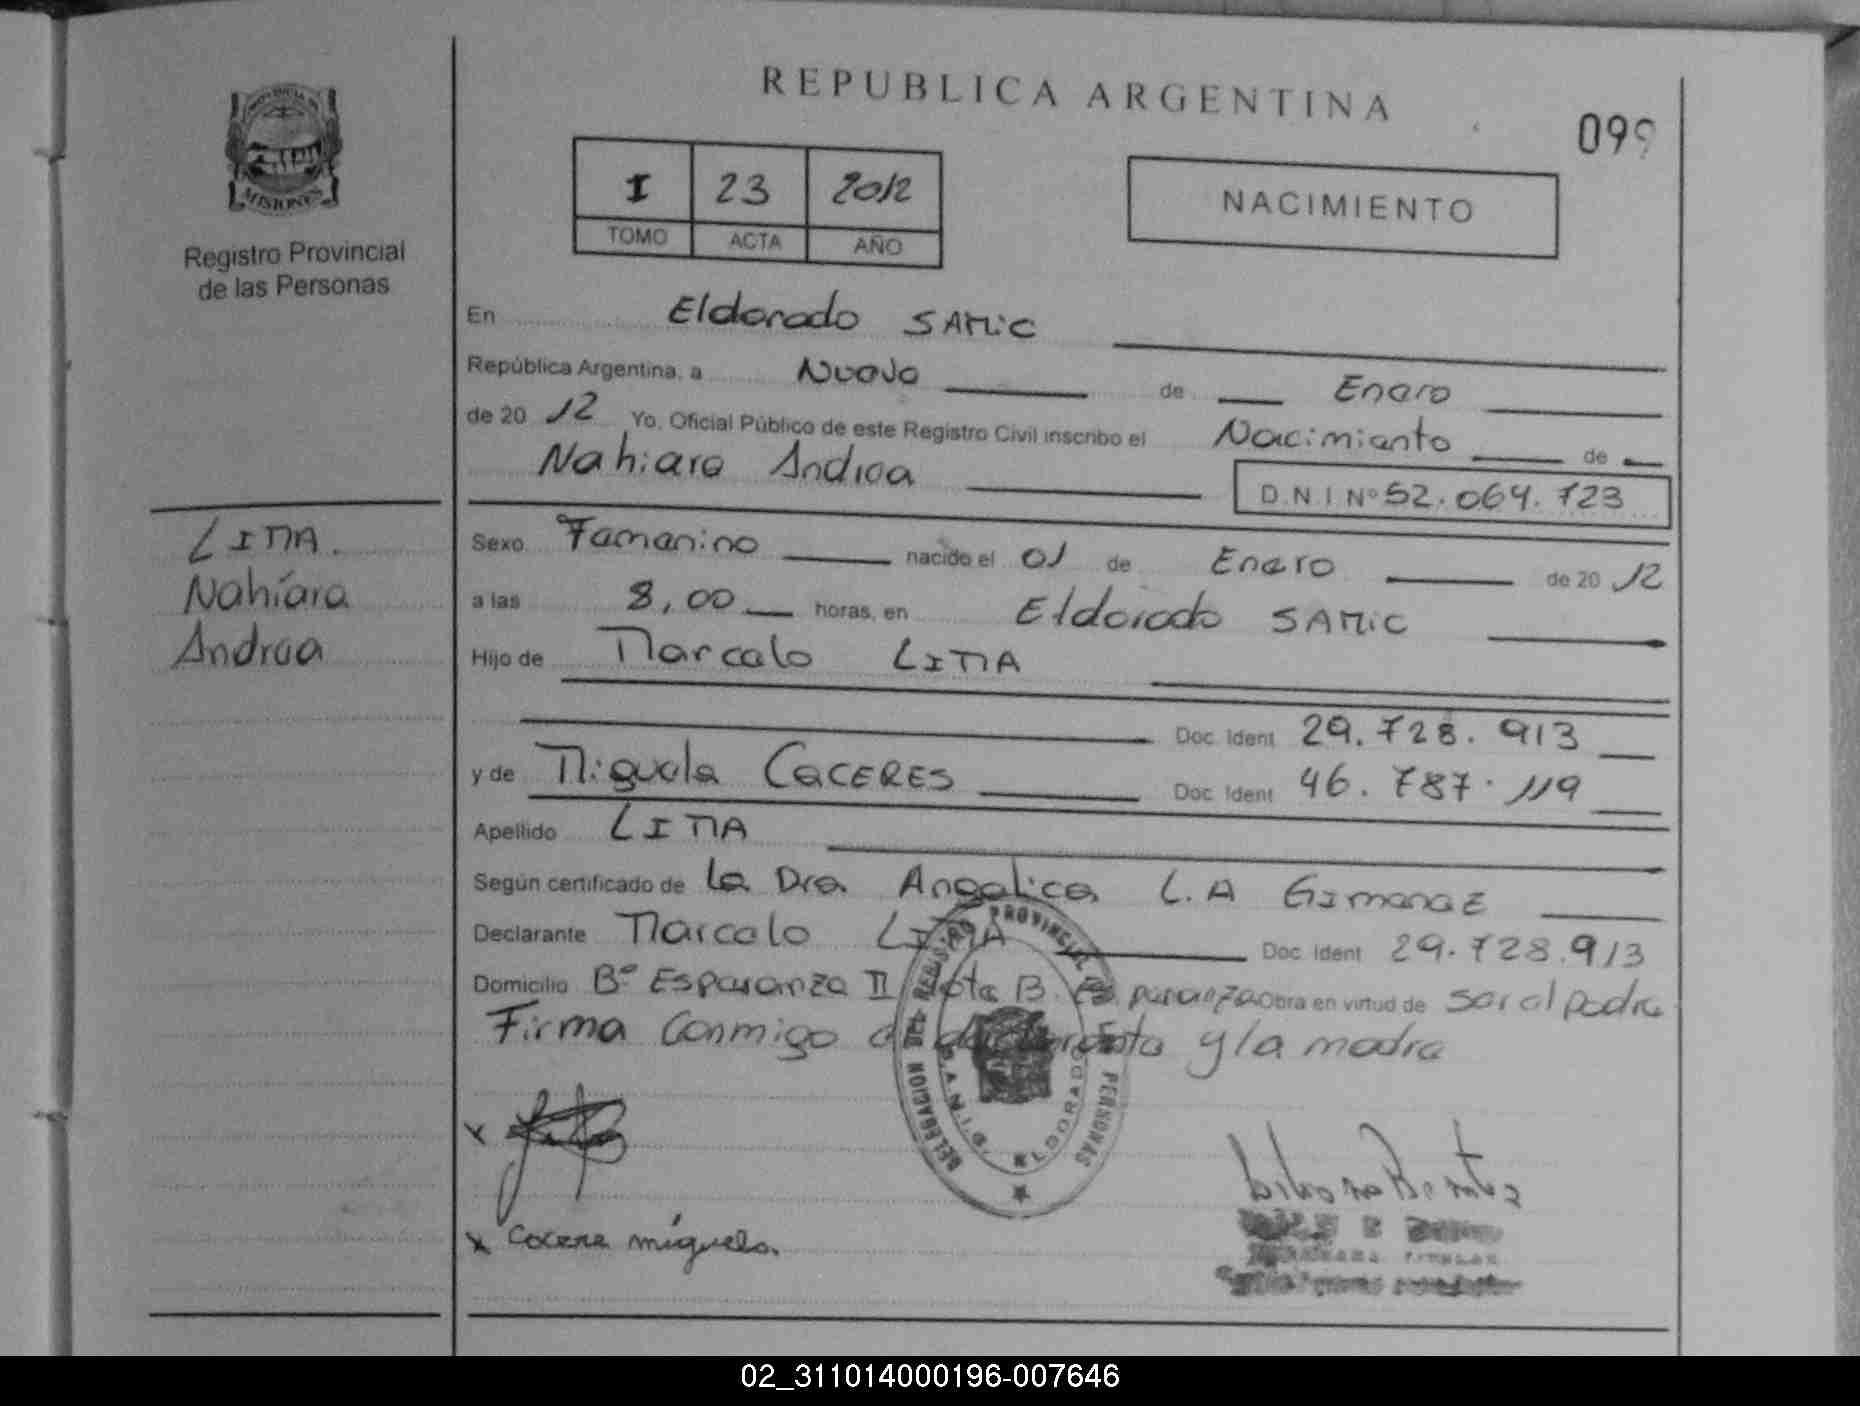 REPUBLICA ARGENTINA
099
PROVINCIA DE
MISIONES
Registro Provincial
de las Personas
I 23 2012
TOMO ACTA AÑO
NACIMIENTO
En Eldorado SAMIC
República Argentina, a Nueve de Enero
de 20 12 Yo, Oficial Público de este Registro Civil inscribo el Nacimiento de
Nahiara Andrea
D.N.I Nº 52.064.723
LIMA.
Nahíara
Andrea
Sexo Femenino nacido el 01 de Enero de 20 12
a las 8,00 horas, en Eldorado SAMIC
Hijo de Marcelo LIMA
Doc. Ident 29.728.913
y de Miguela CACERES Doc. Ident 46.787.119
Apellido LIMA
Según certificado de La Dra. Angelica L.A Gimenez
Declarante Marcelo LIMA Doc. Ident 29.728.913
Domicilio Bº Esperanza II Lote B. Esperanza Obra en virtud de ser el padre
Firma Conmigo el declarante y la madre
DELEGACION DEL REGISTRO PROVINCIAL PERSONAS
ELDORADO
x
x Cacere miguela.
02_311014000196-007646